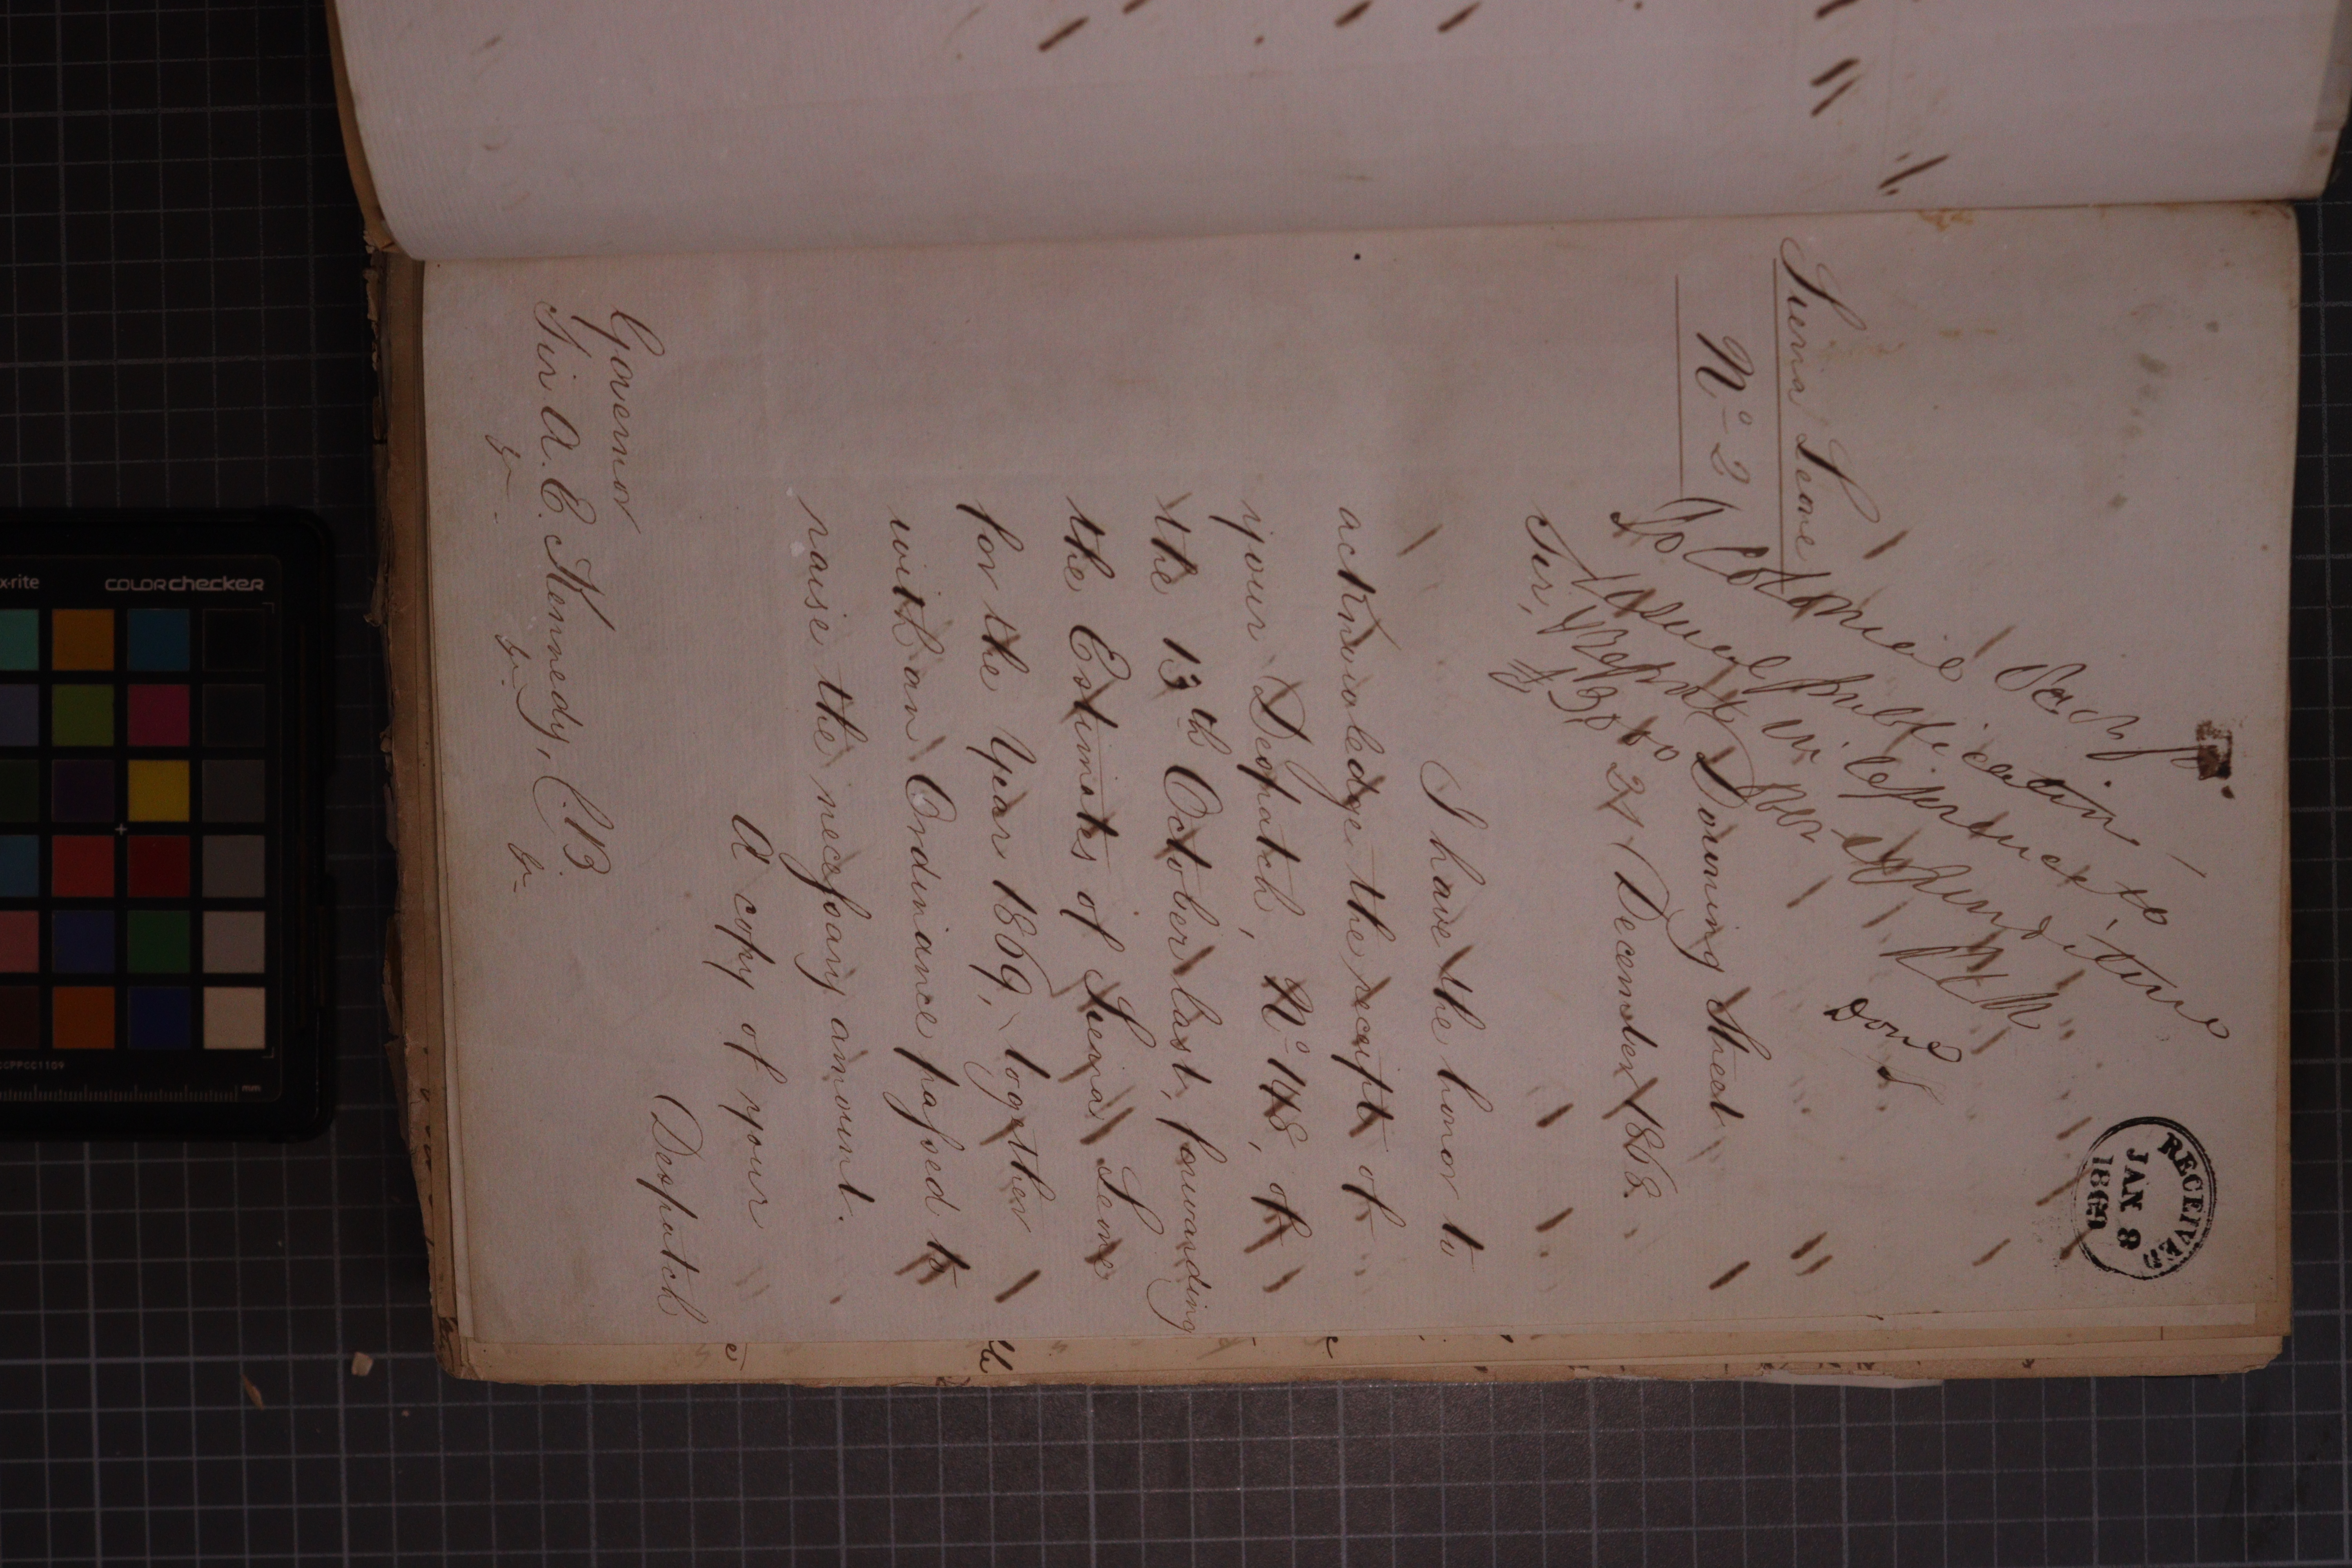 RECEIVED
JAN 8
1869
Sierra Leone
Nº 2
To Colonial Secy for
publication
in reference to
Expenditure
Done
Downing Street
21 December 1868.
Sir,
I have the honor to
acknowledge the receipt of
your Despatch, Nº 148, of
the 13th October last, forwarding
the Estimates of Sierra Leone
for the Year 1869, together
with an Ordinance passed to
raise the necessary amount.
A copy of your
Despatch
Governor
Sir A. E. Kennedy, C.B.
&c. &c. &c.
x-rite
COLORchecker
mm